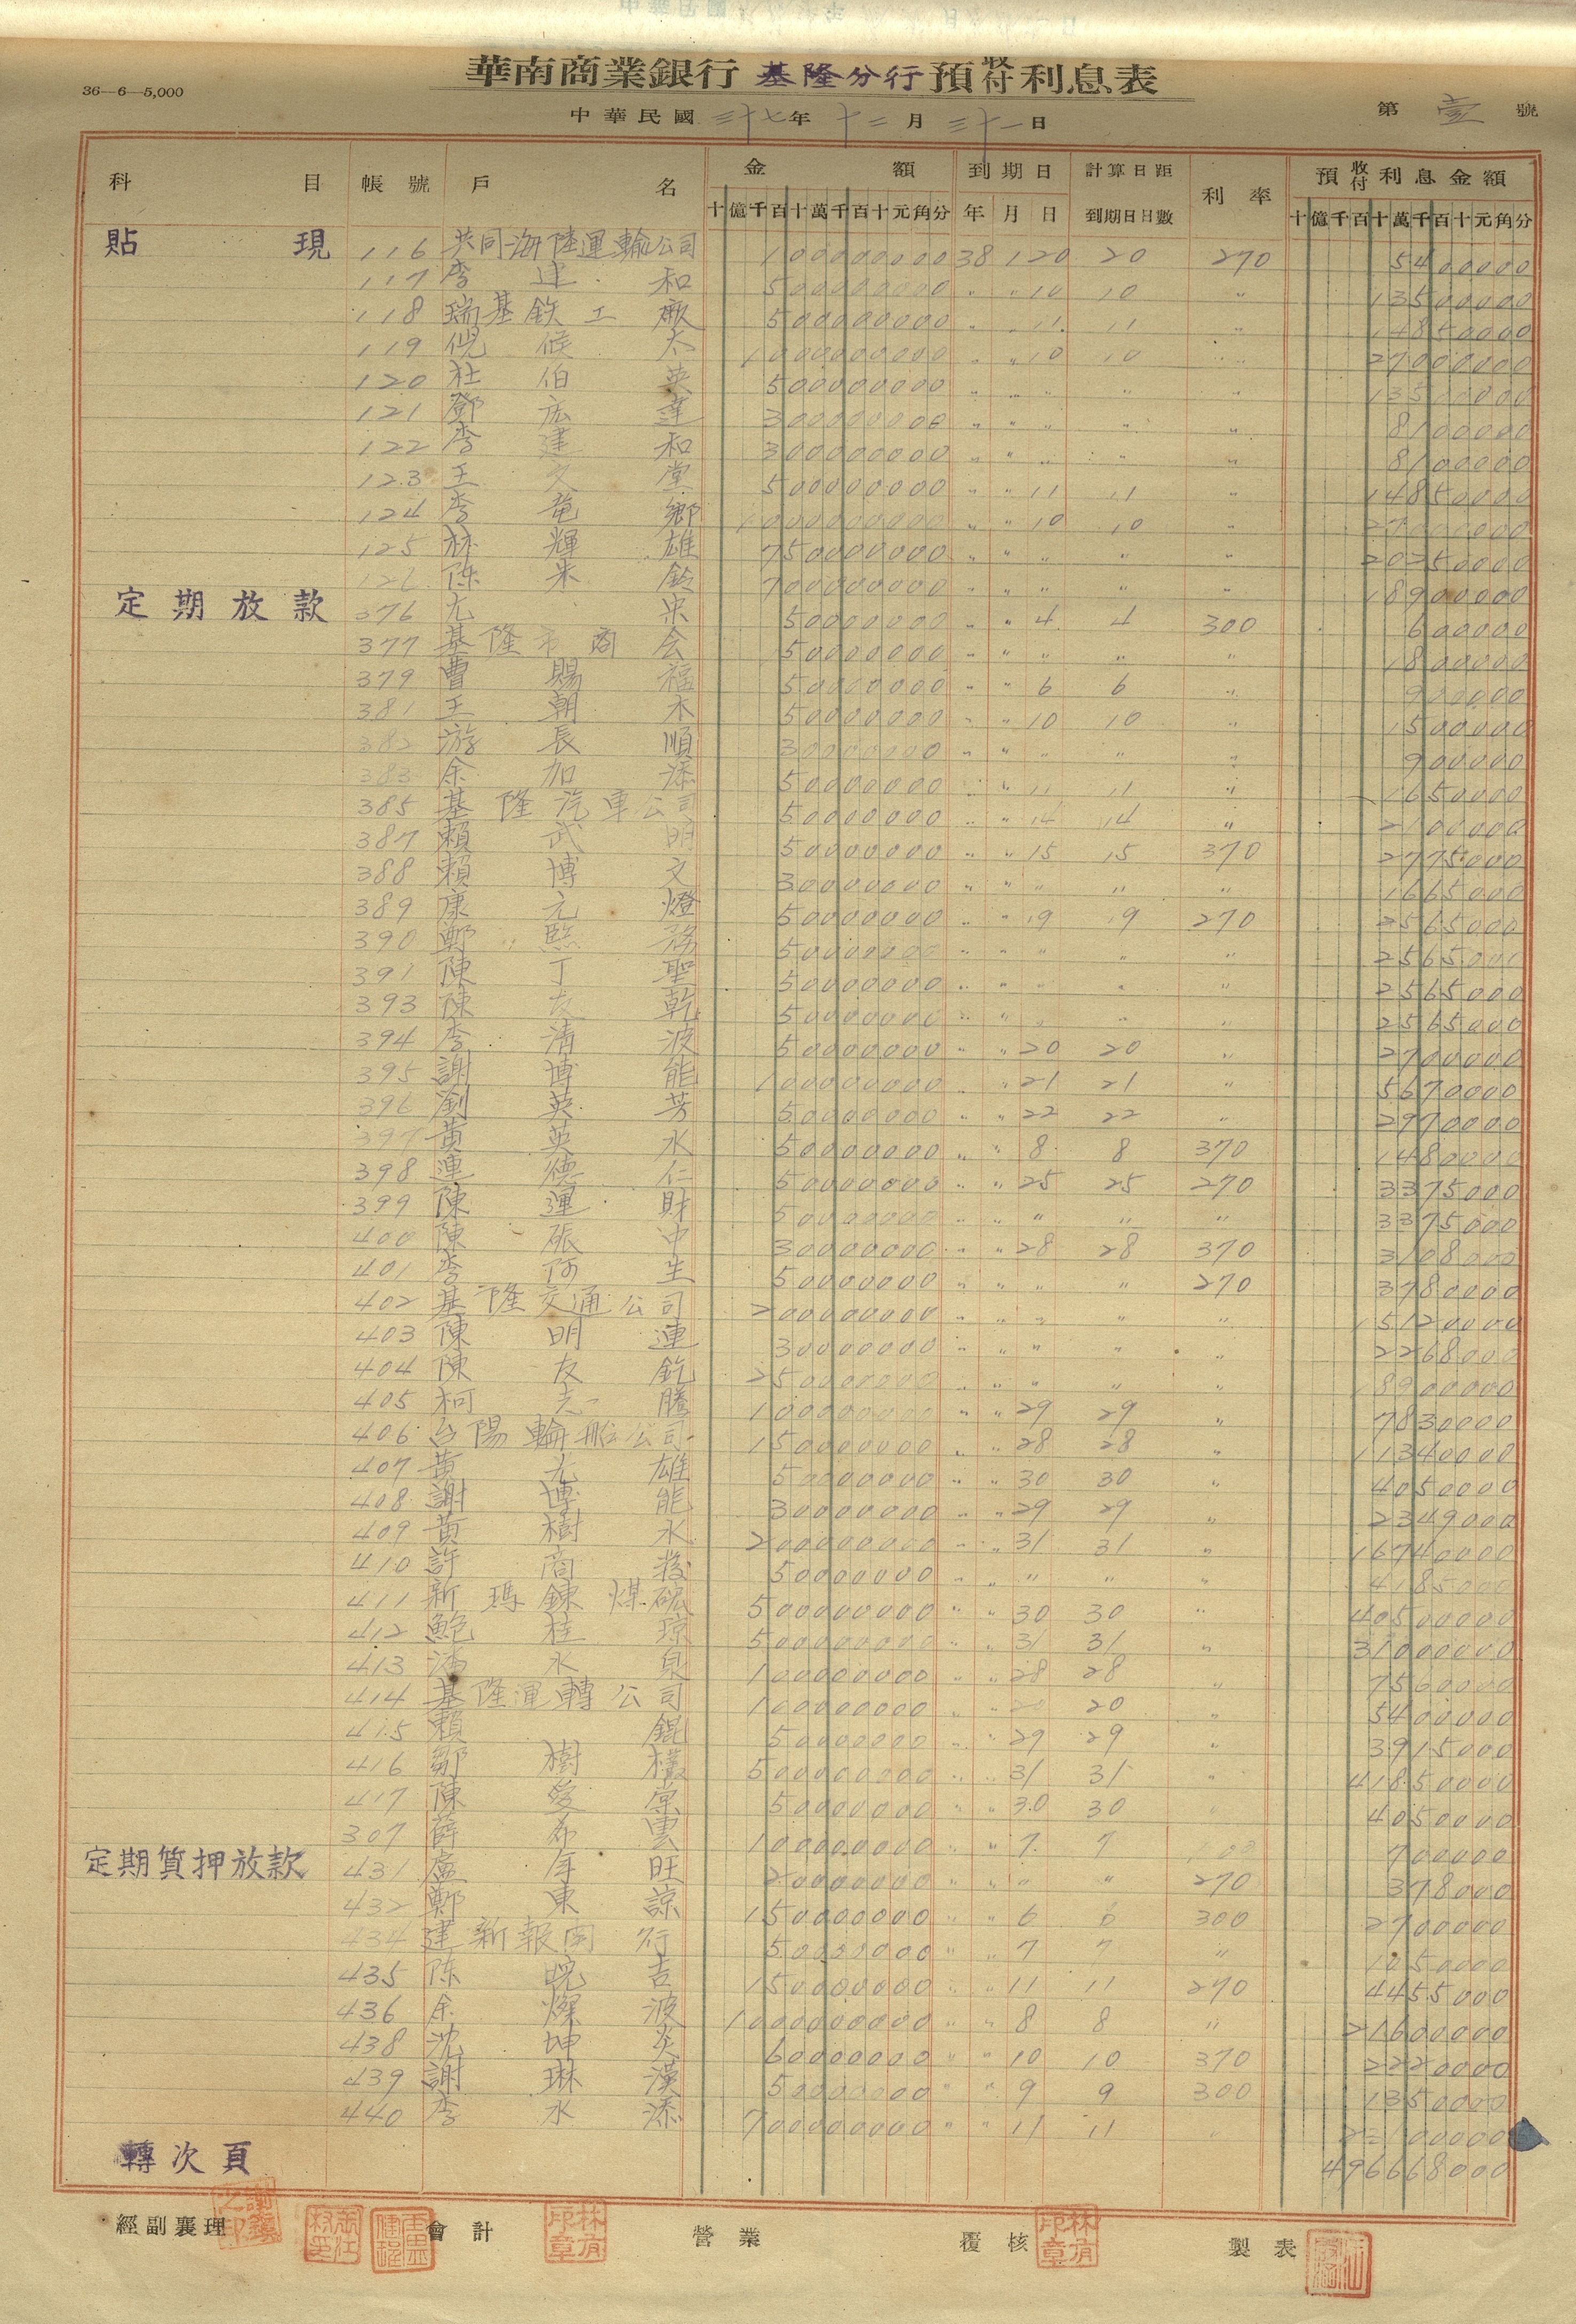 華南商業銀行 基隆分行 預收付利息表
36—6—5,000
中華民國 三十七年 十二月 三十一日
第 壹 號
科目 帳號 戶名 金額 到期日 計算日距到期日日數 利率 預收付利息金額
十億千百十萬千百十元角分 年月日 十億千百十萬千百十元角分
貼現 116 共同海陸運輸公司 100000000 38 1 20 20 270 5400000
117 李建和 500000000 〃 〃 10 10 〃 13500000
118 瑞基鉄工廠 500000000 〃 〃 11 11 〃 14850000
119 倪候太 1000000000 〃 〃 10 10 〃 27000000
120 杜伯英 500000000 〃 〃 〃 〃 〃 13500000
121 鄧 300000000 〃 〃 〃 〃 〃 8100000
122 李建和 300000000 〃 〃 〃 〃 〃 8100000
123 王文堂 500000000 〃 〃 11 11 〃 14850000
124 李 鄉 1000000000 〃 〃 10 10 〃 27000000
125 林輝雄 750000000 〃 〃 〃 〃 〃 20250000
126 陳米鈴 700000000 〃 〃 〃 〃 〃 18900000
定期放款 376 尤 50000000 〃 〃 4 4 300 600000
377 基隆市商会 50000000 〃 〃 〃 〃 〃 1800000
379 曹賜福 50000000 〃 〃 6 6 〃 900000
381 王朝木 50000000 〃 〃 10 10 〃 1500000
382 游長順 30000000 〃 〃 〃 〃 〃 900000
383 余加添 50000000 〃 〃 11 11 〃 1650000
385 基隆汽車公司 50000000 〃 〃 14 14 〃 2100000
387 賴武明 50000000 〃 〃 15 15 370 2775000
388 賴博文 30000000 〃 〃 〃 〃 〃 1665000
389 康元燈 50000000 〃 〃 19 19 270 2565000
390 鄭 50000000 〃 〃 〃 〃 〃 2565000
391 陳丁聖 50000000 〃 〃 〃 〃 〃 2565000
393 陳友乾 50000000 〃 〃 〃 〃 〃 2565000
394 李清波 50000000 〃 〃 20 20 〃 2700000
395 謝博能 100000000 〃 〃 21 21 〃 5670000
396 劉英芳 50000000 〃 〃 22 22 〃 2970000
397 黃英水 50000000 〃 〃 8 8 370 1480000
398 連德仁 50000000 〃 〃 25 25 270 3375000
399 陳運財 50000000 〃 〃 〃 〃 〃 3375000
400 陳振中 30000000 〃 〃 28 28 370 3108000
401 李阿生 50000000 〃 〃 〃 〃 270 3780000
402 基隆交通公司 200000000 〃 〃 〃 〃 〃 15120000
403 陳明連 30000000 〃 〃 〃 〃 〃 2268000
404 陳友 250000000 〃 〃 〃 〃 〃 18900000
405 柯志騰 100000000 〃 〃 29 29 〃 7830000
406 台陽輪船公司 150000000 〃 〃 28 28 〃 11340000
407 黃光雄 50000000 〃 〃 30 30 〃 4050000
408 謝博能 30000000 〃 〃 29 29 〃 2349000
409 黃樹水 200000000 〃 〃 31 31 〃 16740000
410 許商 50000000 〃 〃 〃 〃 〃 4185000
411 新瑪鍊煤砿 500000000 〃 〃 30 30 〃 40500000
412 鮑桂琼 500000000 〃 〃 31 31 〃 31000000
413 潘水泉 100000000 〃 〃 28 28 〃 7560000
414 基隆運轉公司 100000000 〃 〃 20 20 〃 5400000
415 賴錕 50000000 〃 〃 29 29 〃 3915000
416 鄒樹 500000000 〃 〃 31 31 〃 41850000
417 陳愛棠 50000000 〃 〃 30 30 〃 4050000
307 薛 雲 100000000 〃 〃 7 7 700000
定期質押放款 431 盧年旺 20000000 〃 〃 〃 〃 270 378000
432 鄭東諒 150000000 〃 〃 6 6 300 2700000
434 建新報関行 50000000 〃 〃 7 7 〃 1050000
435 陈 吉 150000000 〃 〃 11 11 270 4455000
436 余燦波 1000000000 〃 〃 8 8 〃 21600000
438 沈坤炎 60000000 〃 〃 10 10 370 2220000
439 謝琳漢 50000000 〃 〃 9 9 300 1350000
440 李水添 700000000 〃 〃 11 11 〃 23100000
轉次頁 496668000
經副襄理 會計 營業 覆核 製表
林有印章
林有印章